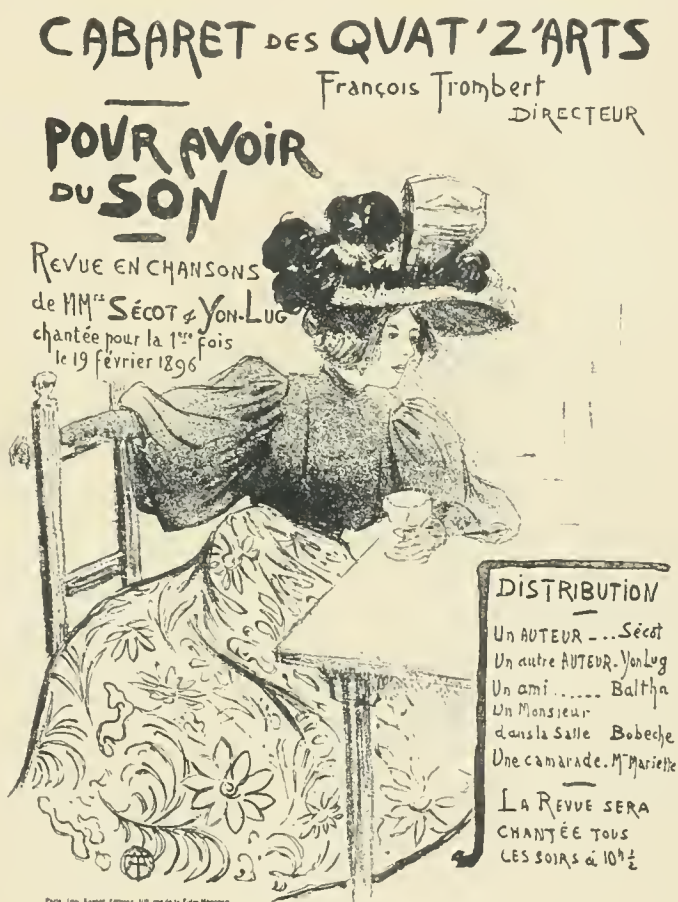 CABARET DES QUAT'Z'ARTS
François Trombert
DIRECTEUR
POUR AVOIR
DU SON
REVUE EN CHANSONS
de MMrs SÉCOT & YON-LUG
chantée pour la 1ère fois
le 19 février 1896
DISTRIBUTION
Un AUTEUR - ... Sécot
Un autre AUTEUR - Yon Lug
Un ami ...... Baltha
Un Monsieur
dans la Salle Bobeche
Une camarade. Mme Mariette
LA REVUE SERA
CHANTÉE TOUS
LES SOIRS à 10h ½